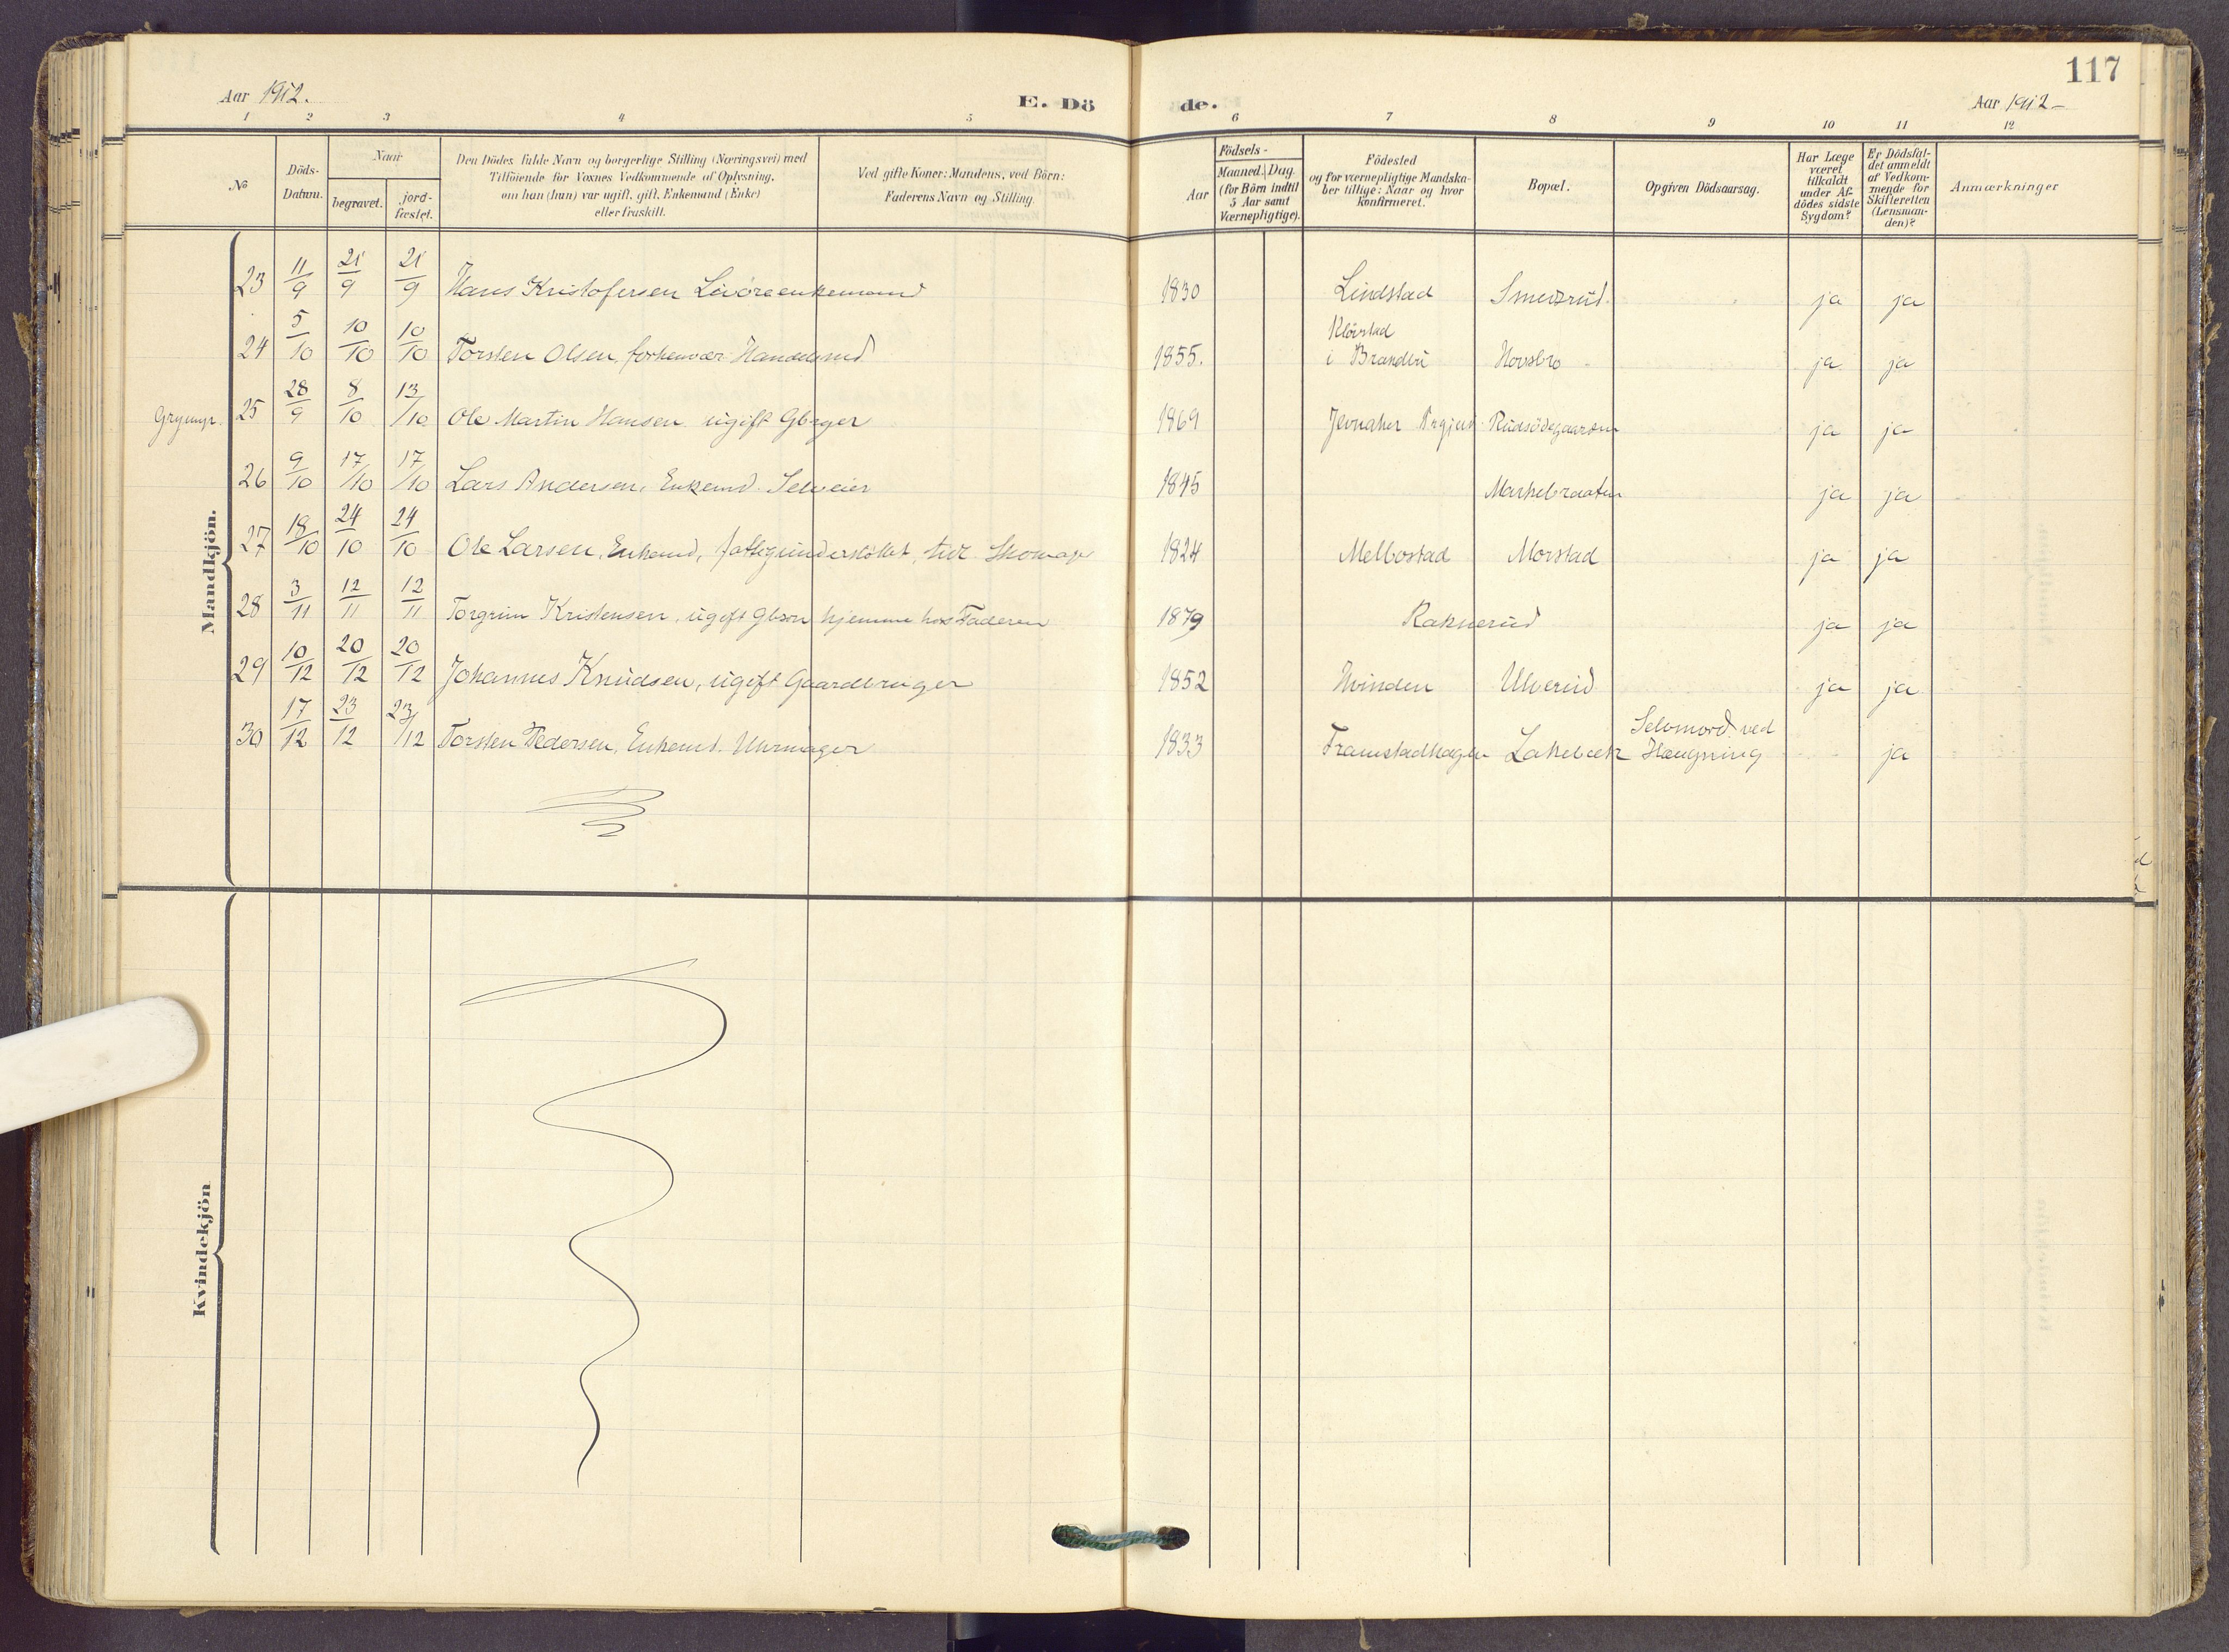 117
Aar 1912. E. Dö de. Aar 1912
1 2 3 4 5 6 7 8 9 10 11 12
No
Döds-
Datum.
Naar
begravet.
jord-
fæstet.
Den Dödes fulde Navn og borgerlige Stilling (Næringsvei) med
Tilföiende for Voxnes Vedkommende af Oplysning,
om han (hun) var ugift, gift, Enkemand (Enke)
eller fraskilt.
Ved gifte Koner: Mandens, ved Börn:
Faderens Navn og Stilling.
Födsels-
Aar
Maaned. Dag.
(for Börn indtil
5 Aar samt
Værnepligtige).
Födested
og for værnepligtige Mandska-
ber tillige: Naar og hvor
konfirmeret.
Bopæl.
Opgiven Dödsaarsag.
Har Læge
været
tilkaldt
under Af-
dödes sidste
Sygdom?
Er Dödsfal-
det anmeldt
af Vedkom-
mende for
Skifteretten
(Lensman-
den)?
Anmærkninger
Mandkjön.
23 11/9 21/9 21/9 Hans Kristofersen enkemand 1830 Lindstad Smedsrud. ja ja
24 5/10 10/10 10/10 Torsten Olsen, forhenvær. Handelsmd 1855. Klövstad
i Brandbu Hovsbro ja ja
Grymyr. 25 28/9 8/10 13/10 Ole Martin Hansen ugift Gbrger 1869 Jevnaker Prgjld Rudsödegaarden ja ja
26 9/10 17/10 17/10 Lars Andersen, Enkemd. Selveier 1845 Markebraaten ja ja
27 18/10 24/10 24/10 Ole Larsen, Enkemd, fattigunderstöttet, tidl. Skomager 1824 Melbostad Morstad ja ja
28 3/11 12/11 12/11 Torgrim Kristensen, ugift Gbsön hjemme hos Faderen 1879 Raknerud ja ja
29 10/12 20/12 20/12 Johannes Knudsen, ugift Gaardbruger 1852 Hvinden Ulverud ja ja
30 17/12 23/12 23/12 Torsten Pedersen, Enkemd. Uhrmager 1833 Framstadhagen Lakebæk Selvmord ved
Hængning ja
Kvindekjön